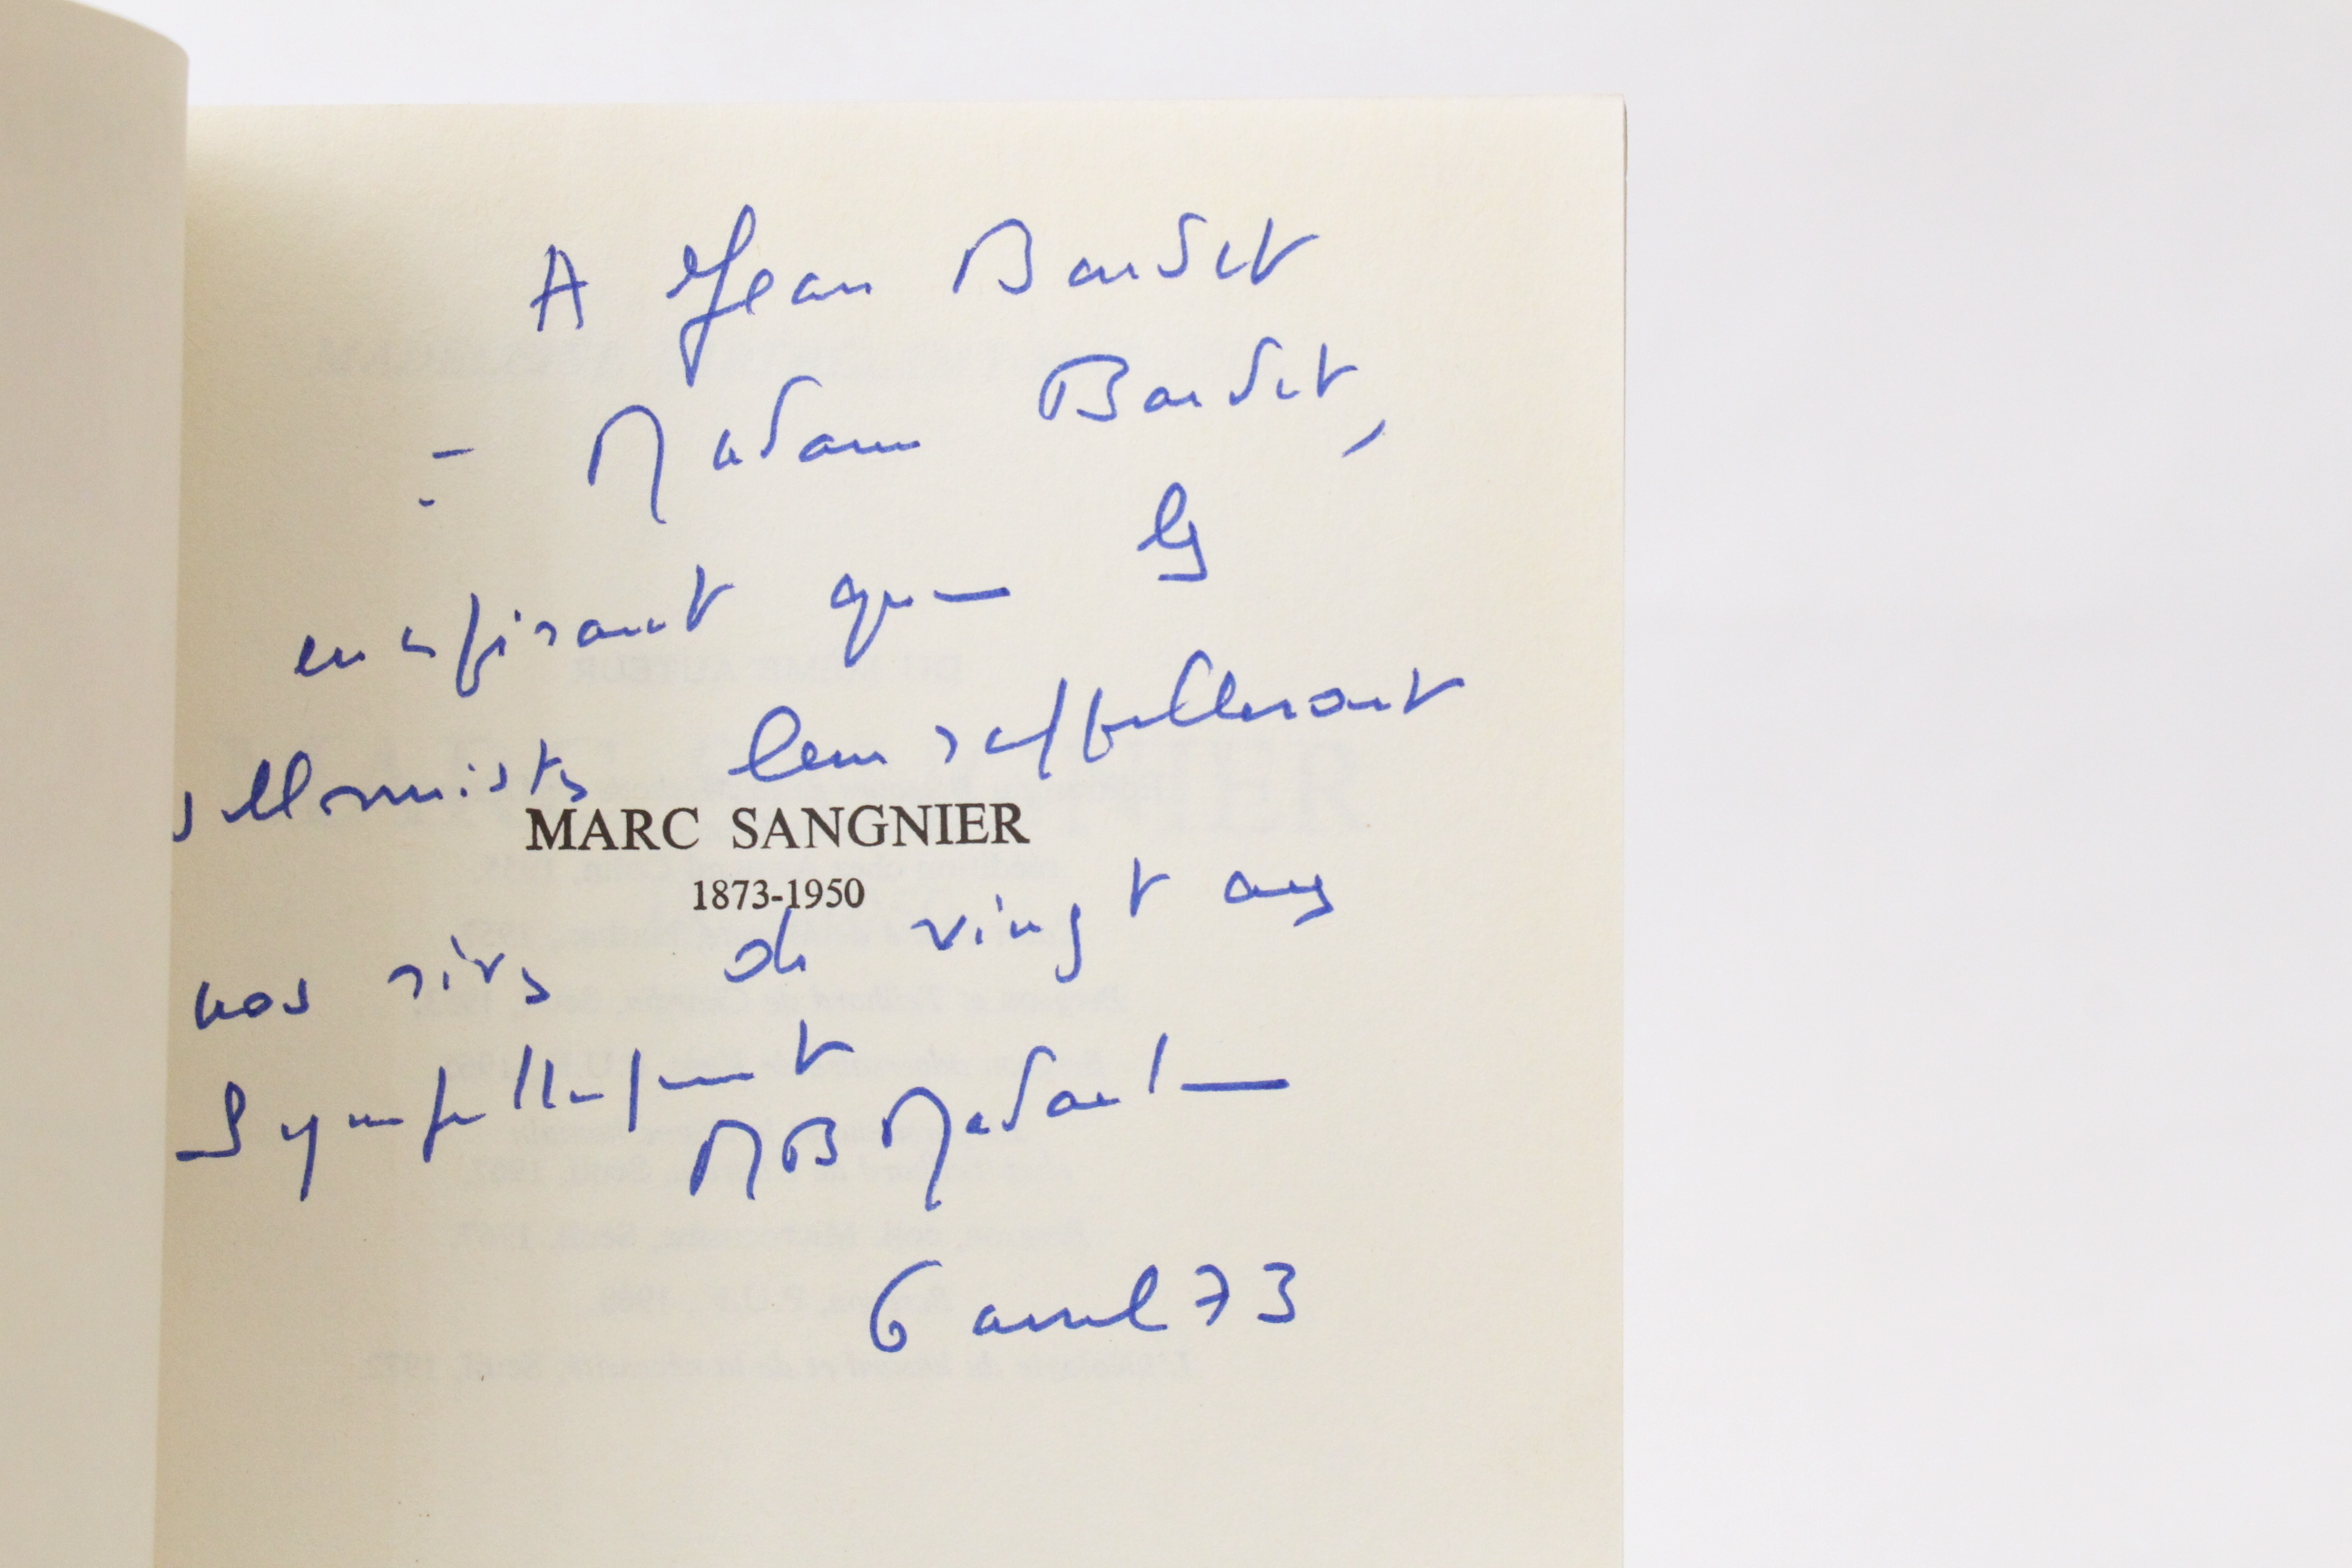 A Jean
Madame
en espérant que les
sillonnistes leur rappelleront
MARC SANGNIER
1873-1950
nos rêves de vingt ans
Sympathiquement
MB Madaule
6 avril 73